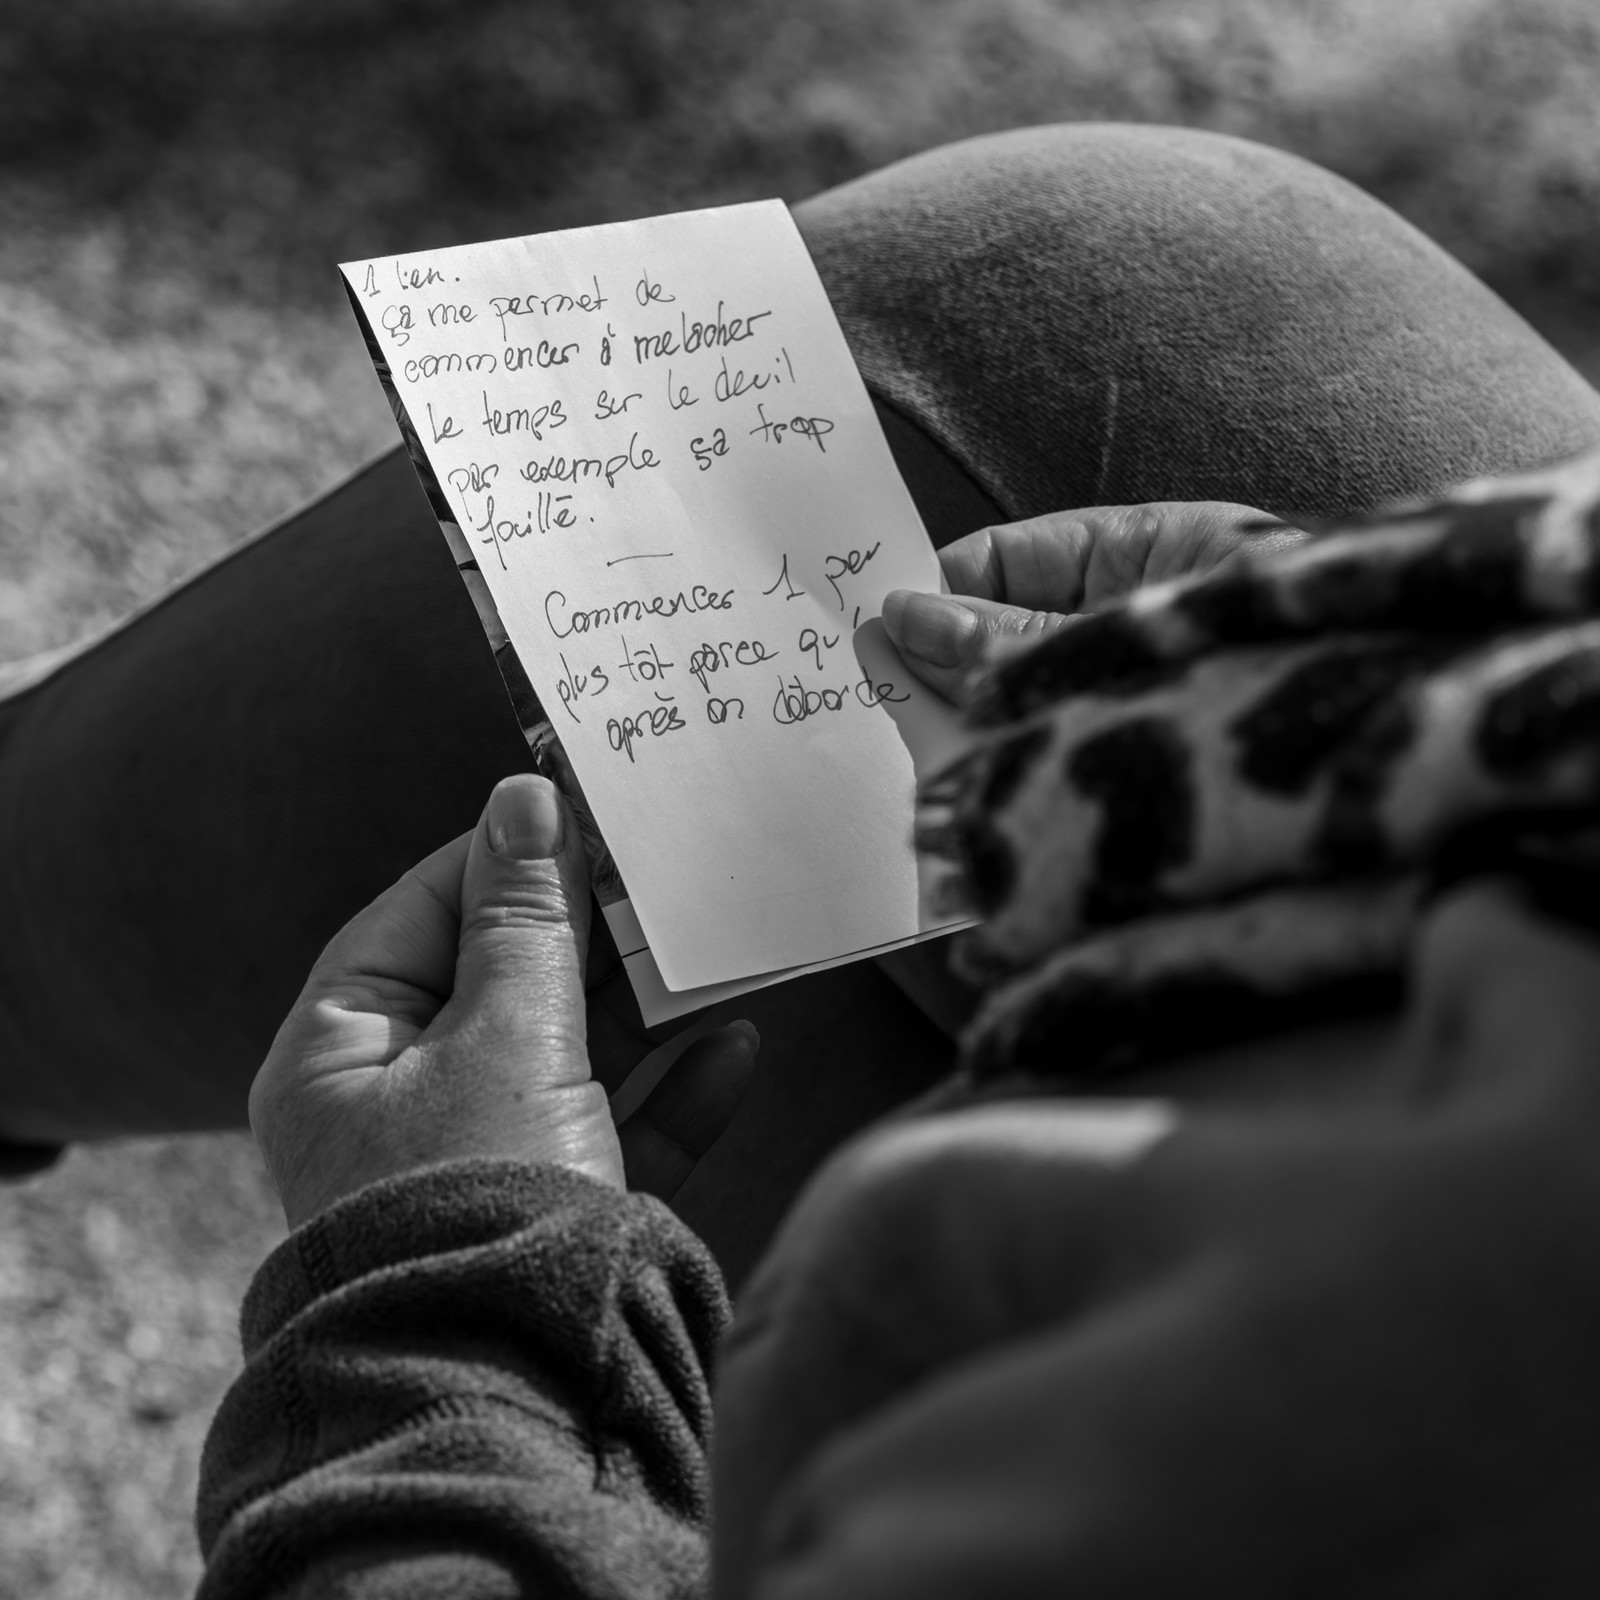 1 lien.
ça me permet de
commencer à me lacher
le temps sur le deuil
par exemple ça trop
fouillé.
Commencer 1 peu
plus tôt parce qu'
après on déborde